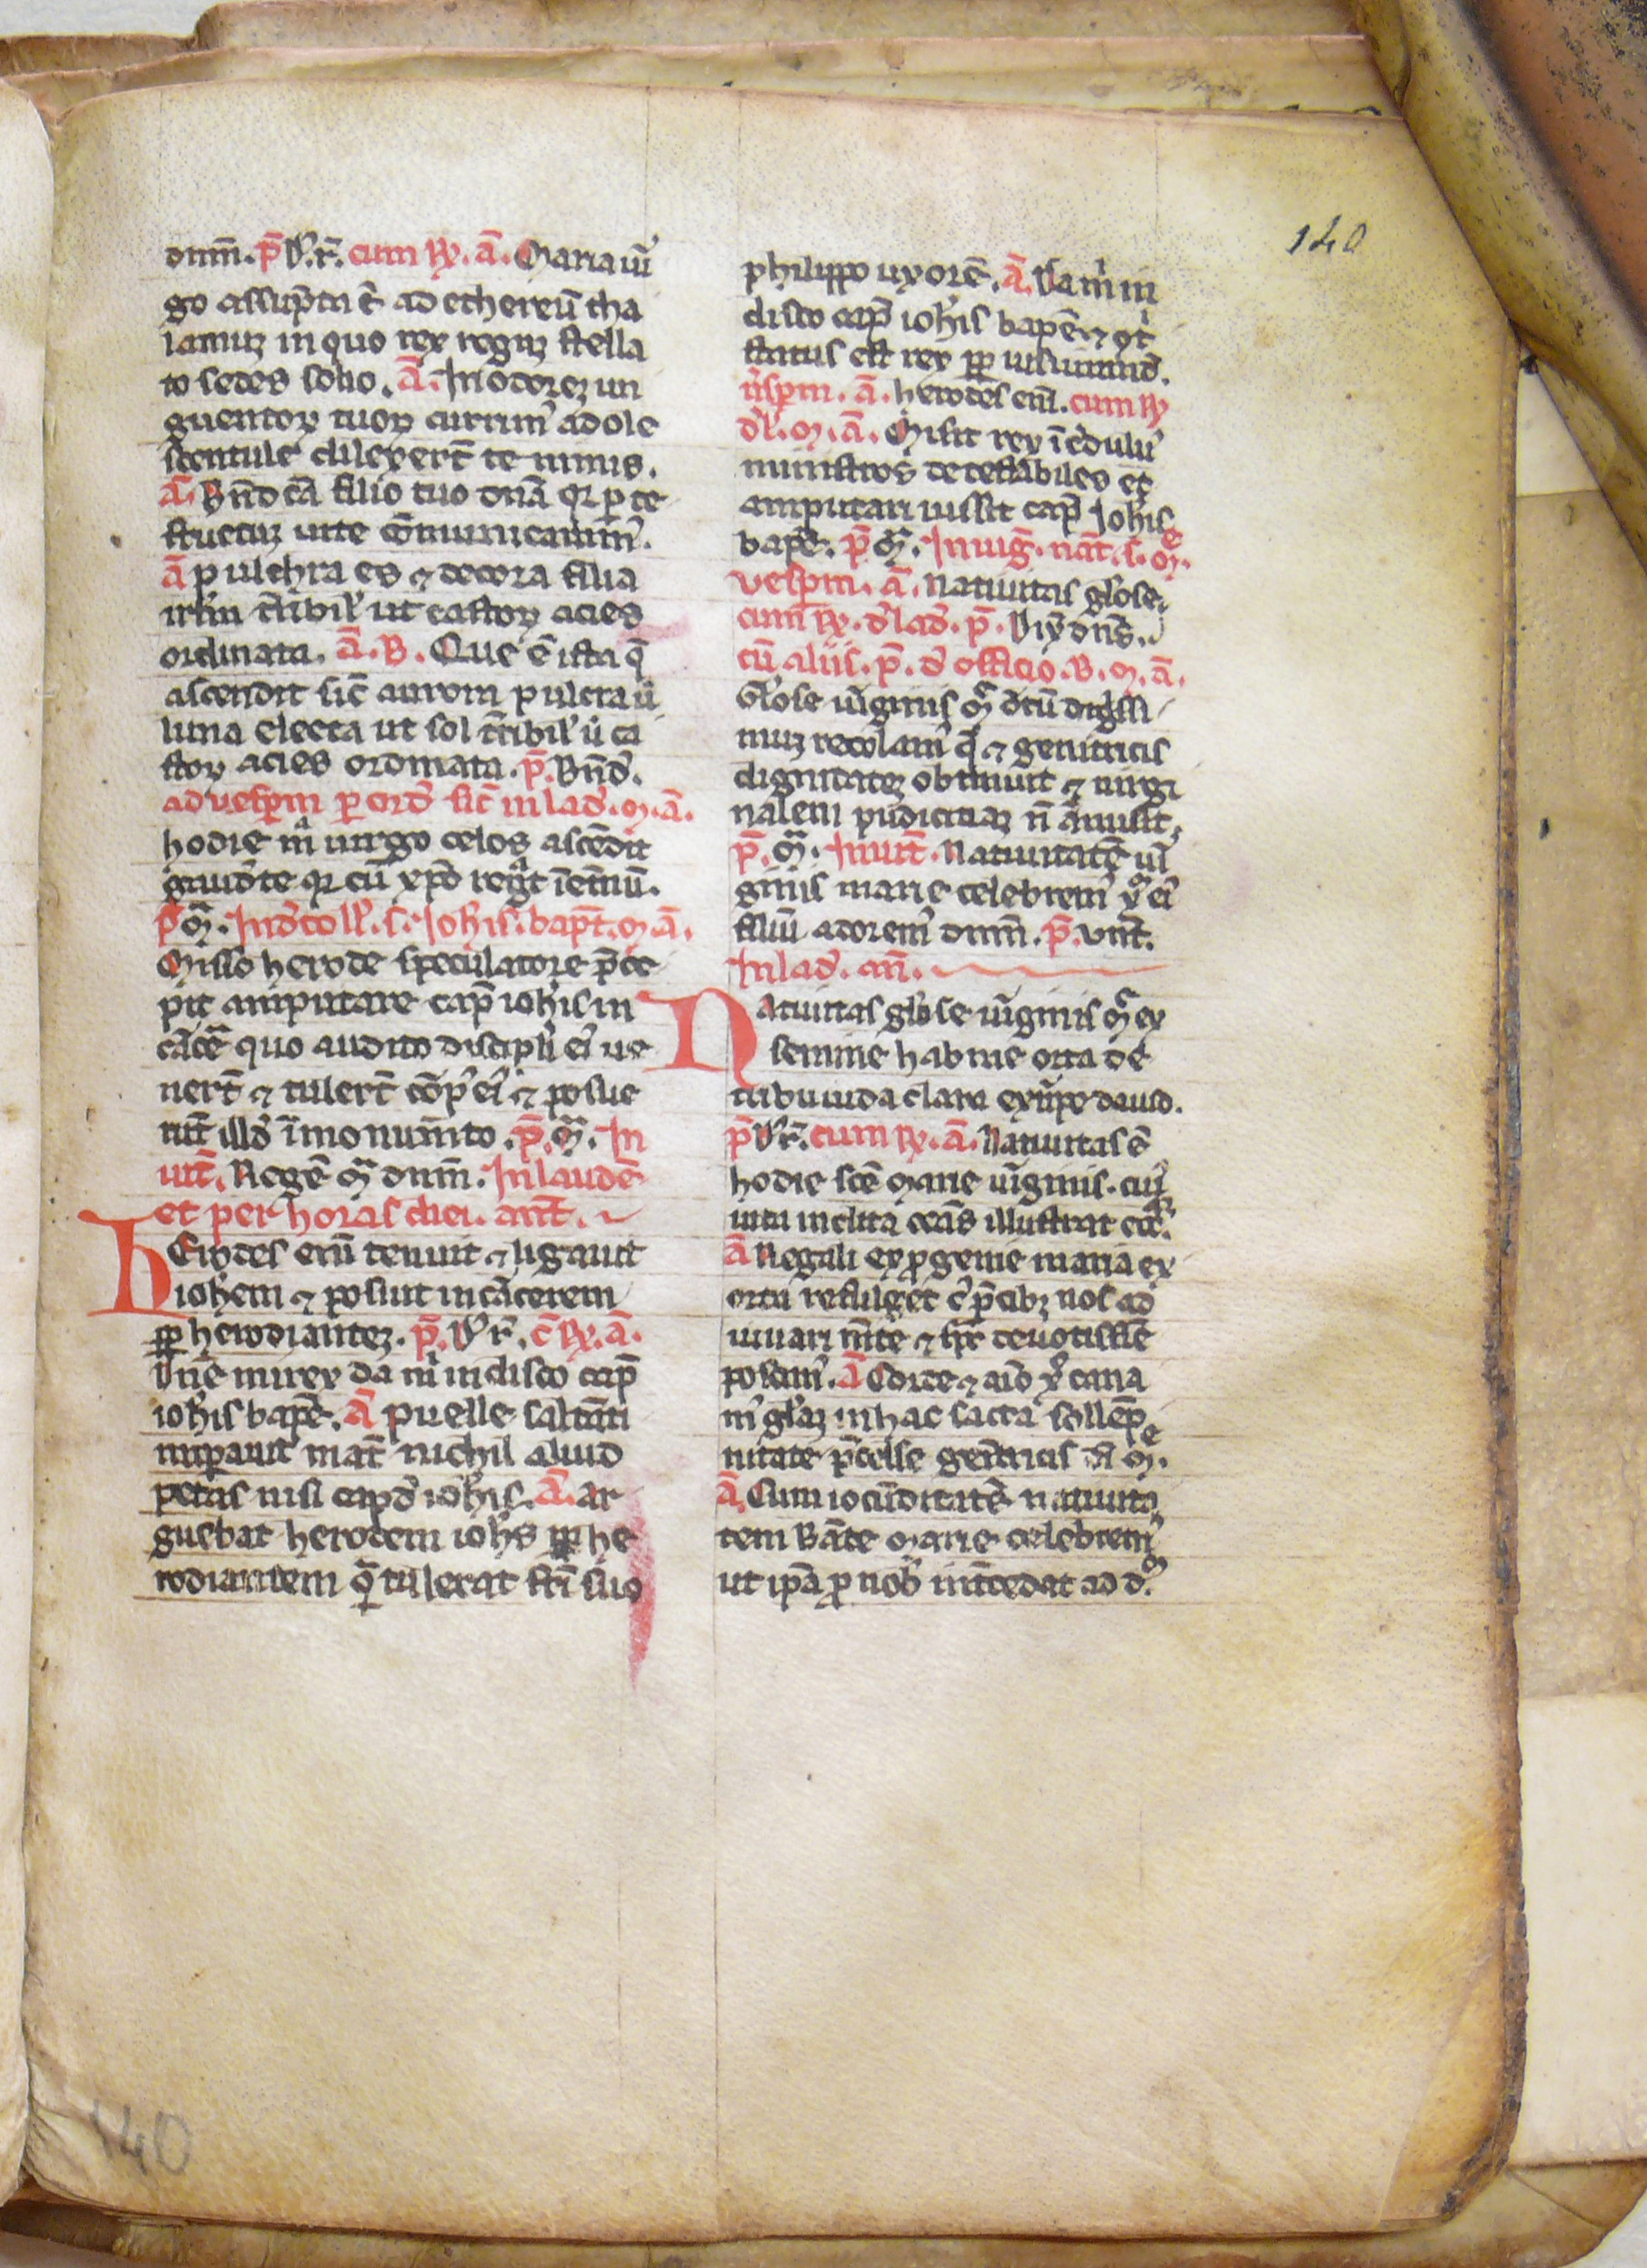 140
dnm̄. p̄ D̓.r̄. cum Rx. ā. Maria ui᷑
go assūpta ē ad ethereū tha
lamuꝫ in quo rex reguꝫ stella
to sedet solio. ā. In odoreꝫ un
guentoꝝ tuoꝝ currim᷑ adole
scentule dilexert̄ te nimis.
ā. Bn̄dcā filio tuo dn̄a qꝛ ꝑ te
fructuꝫ uite cōmunicauim᷑.
ā pulchra es ⁊ decora filia
irl̄m t̄ribil᷑ ut castoꝝ acies
ordinata. ā. B. Que ē ista q̄
ascendit sic̄ aurora pulcra ū
luna electa ut sol t̄ribil᷑ ū ca
stoꝝ acies ordinata. p̄. Bn̄d᷑.
ad vesꝑm ꝑ ord᷑ sic̄ in lad᷑. m. ā.
hodie mᵃ uirgo celos ascēdit
gaud᷑te qꝛ cū xp̄o regᵃt ī et̄nū.
p̄ mᵃ. In d᷑coll᷑. s. Ioh᷑is. bapt̄. m ā.
Misso herode speculatore p̄ce
pit amputare cap̄ ioh᷑is in
cāc̄e quo audito discipl᷑i ei᷑ ue
nert̄ ⁊ tulert̄ cōp᷑ ei᷑ ⁊ posue
rūt ill᷑d ī monum̄to. p̄. mᵃ. In
uit̄. Regē mᵃ dnm̄. In laudē
et per horas diei. ant̄.
hErodes enī tenuit ⁊ ligauit
ioh᷑em ⁊ posuit in cācerem
ꝓꝑ herodiadeꝫ. p̄. D᷑r̄. c̄ Rx. ā.
Dn̄e mi rex da m᷑ in disco cap̄
ioh᷑is bapē. ā puelle saltāti
imꝑauit mat̄ nichil aliud
petas nisi capd᷑ ioh᷑is. ā. ar
guebat herodem ioh᷑s ꝓꝑ he
rodiadem qᵃ tulerat fr̄i suo
philippo uxorē. ā. Da m᷑ in
disco cap̄ ioh᷑is bapē ⁊ 9t᷑
status est rex ꝓꝑ iusiurand᷑.
vesꝑm. ā. herodes eni᷑. cum Rx
d᷑ l᷑. m. ā. Misit rex īc᷑dulu᷑
ministros detestabiles et
amputari iussit cap̄ Ioh᷑is
bapē. p̄. mᵃ. In uig᷑. nāt. s. mᵉ.
vesꝑm. ā. Natiuitas gl᷑ose.
cum Rx. d᷑ lad᷑. p̄. Dix᷑ dn̄s.
cū aliis. p̄. d᷑ officio. B. m. ā.
Gl᷑ose ui᷑ginis mᵉ ortū dig᷑ssi
muꝫ recolam᷑ q̄ ⁊ genitricis
dignitateꝫ obtinuit ⁊ uirgi
nalem pudicitiaꝫ n̄ āmisit.
p̄. mᵃ. Inuit̄. Natiuitatē ui᷑
ginis marie celebrem᷑ xᵐ ei᷑
filiū adorem᷑ dnm̄. p̄. vnt̄.
In lad᷑. an̄.
Natiuitas gl᷑ose ui᷑ginis mᵉ ex
semine habrae orta de
tribu iuda clara ex stirpe dauid.
p̄ D᷑r̄. cum Rx. ā. Natiuitas ē
hodie scē marie ui᷑ginis. cui᷑
uita inclita cūcās illustrat ecc᷑.
ā Regali ex ꝓgenie maria ex
orta refulget c᷑ p̄cibꝫ nos ad
iuuari m̄te ⁊ spū deuotissīe
poscim᷑. ā Corde ⁊ aīo xᵒ cana
m᷑ gl᷑iaꝫ in hac sacra sollēp
nitate p̄celse gen̄tricis di᷑ mᵉ.
ā. Cum iocūditatē natiuita
tem Bāte marie celebrem᷑
ut ipā ꝓ nob᷑ int̄cedat ad d᷑.
140